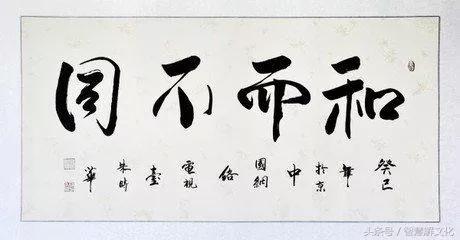 和而不同
癸巳年於京中國網絡電視臺朱時華
头条号/智慧解文化